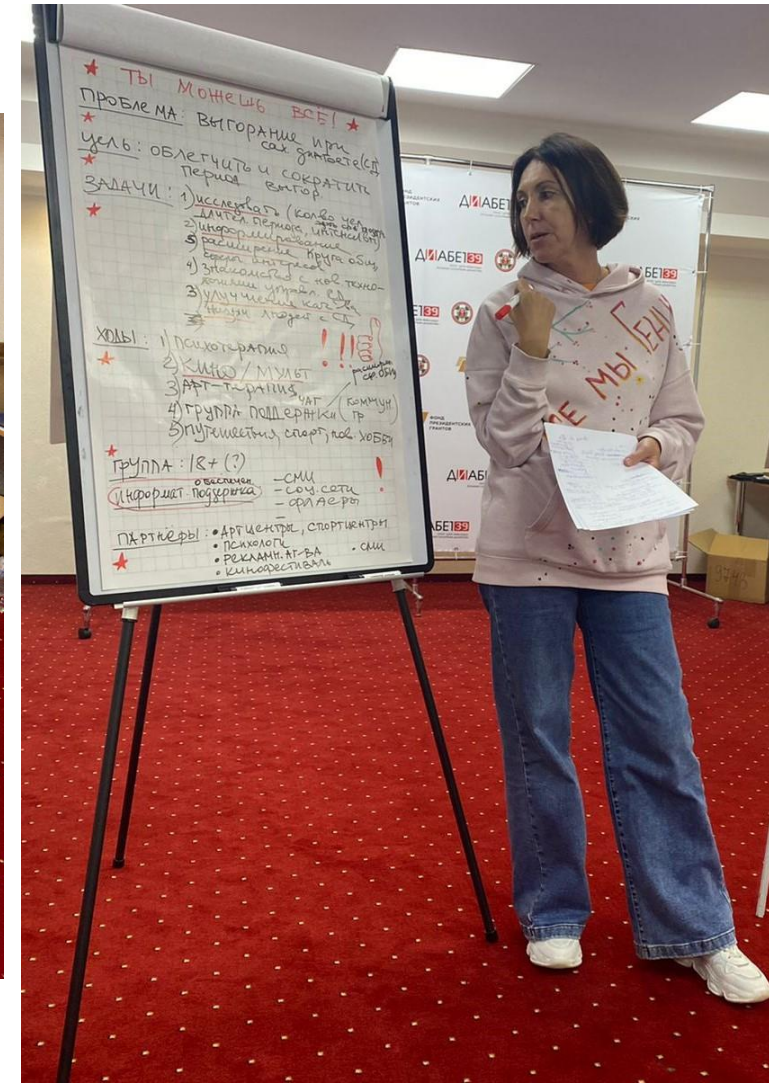 ★ ТЫ МОЖЕШЬ ВСЁ! ★
ПРОБЛЕМА: ВЫГОРАНИЕ ПРИ
САХ ДИАБЕТЕ (СД)
ЦЕЛЬ: ОБЛЕГЧИТЬ И СОКРАТИТЬ
ПЕРИОД ВЫГОР
ЗАДАЧИ: 1) ИССЛЕДОВАТЬ (КОЛ-ВО ЧЕЛ
ДЛИТЕЛ ПЕРИОДА, ИНТЕНСИВН)
2) ИНФОРМИРОВАНИЕ
5) РАСШИРЕНИЕ КРУГА ОБЩ,
4) ЗНАКОМСТВО С НОВ ТЕХНО-
ЛОГИЯМИ УПРАВЛ. СД
3) УЛУЧШЕНИЕ КАЧ-ВА
ЖИЗНИ ЛЮДЕЙ С СД
ХОДЫ: 1) ПСИХОТЕРАПИЯ !!!
2) КИНО/МУЛЬТ
3) АРТ-ТЕРАПИЯ
4) ГРУППА ПОДДЕРЖКИ (ЧАТ / КОММУН ГР)
5) ПУТЕШЕСТВИЯ, СПОРТ, НОВ. ХОББИ
ГРУППА: 18+ (?)
ОБЕСПЕЧЕН
ИНФОРМАТ. ПОДДЕРЖКА
- СМИ
- СОЦ. СЕТИ
- ФЛАЕРЫ
!
ПАРТНЁРЫ: • АРТЦЕНТРЫ, СПОРТЦЕНТРЫ
• ПСИХОЛОГИ
• РЕКЛАМН. АГ-ВА • СМИ
• КИНОФЕСТИВАЛЬ
ДИАБЕТ
ДИАБЕТ39
39
ФОНД
ПРЕЗИДЕНТСКИХ
ГРАНТОВ
МЫ ГЕНИ